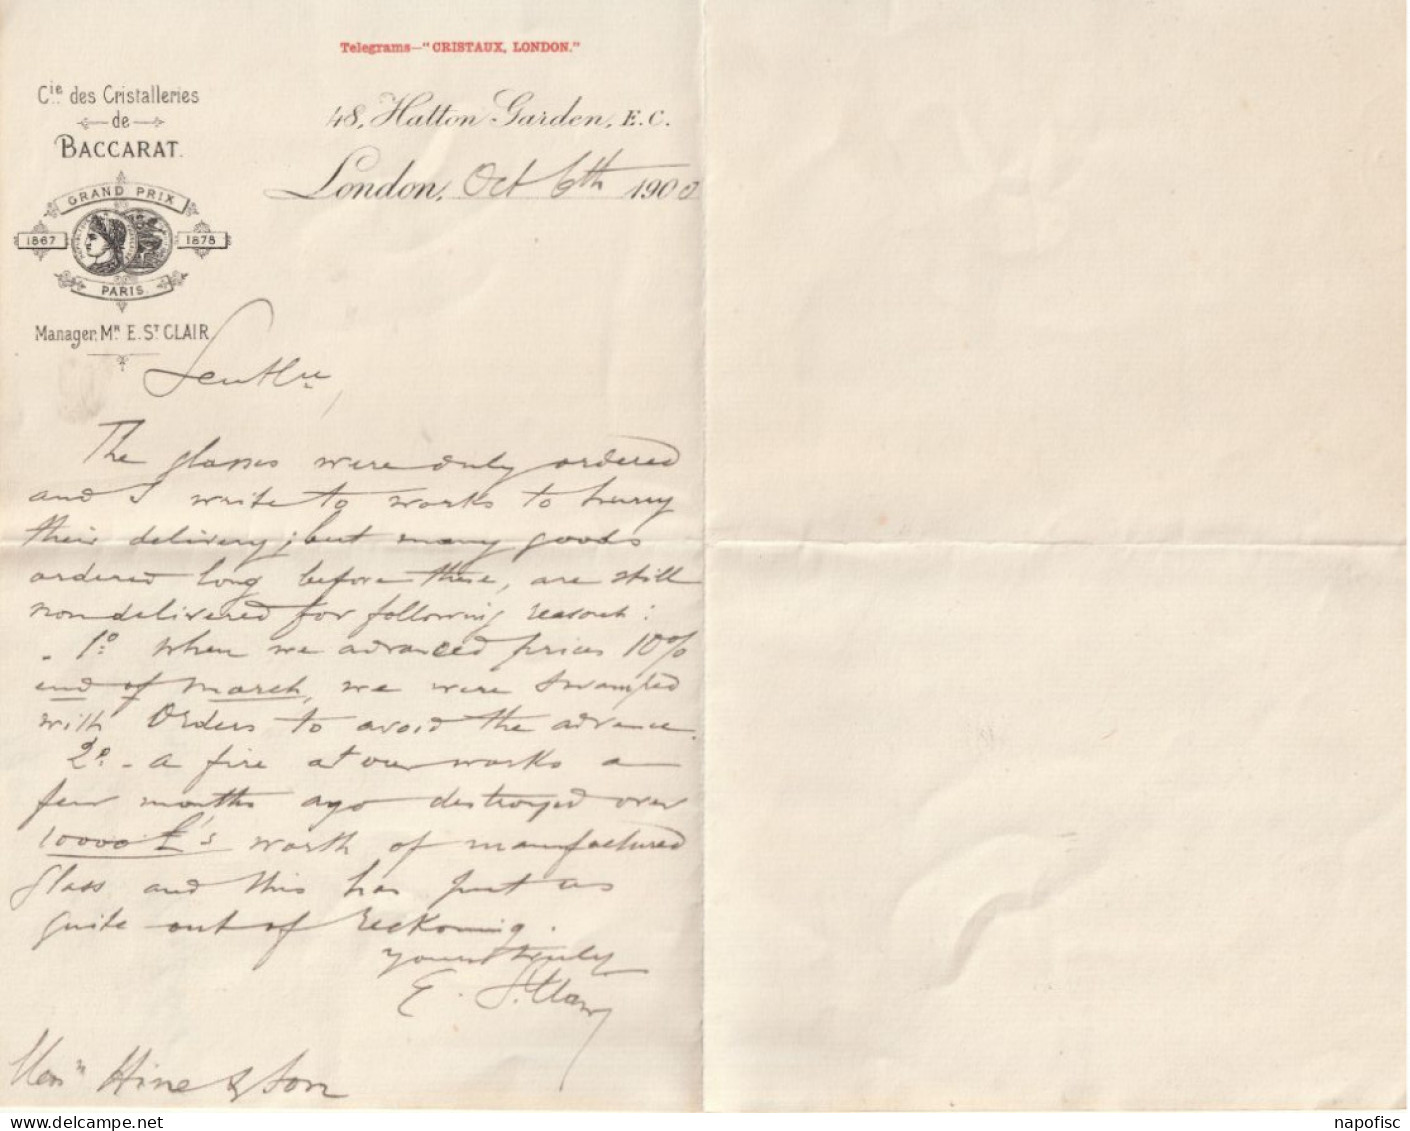 Telegrams—"CRISTAUX, LONDON."
Cie des Cristalleries
de
BACCARAT.
GRAND PRIX
1867 1878
PARIS.
Manager. Mr E. St CLAIR
48, Hatton Garden, E.C.
London, Oct 6th 1900
Gentlm,
The glasses were duly ordered
and I write to works to hurry
their delivery; but many goods
ordered long before these, are still
nondelivered for following reasons:
- 1º: when we advanced prices 10%
end of March, we were swamped
with Orders to avoid the advance.
2º. - a fire at our works a
few months ago destroyed over
10000 £'s worth of manufactured
glass and this has put us
quite out of reckoning.
yours truly
E. St. Clair
Hine & Son
napofisc
www.delcampe.net